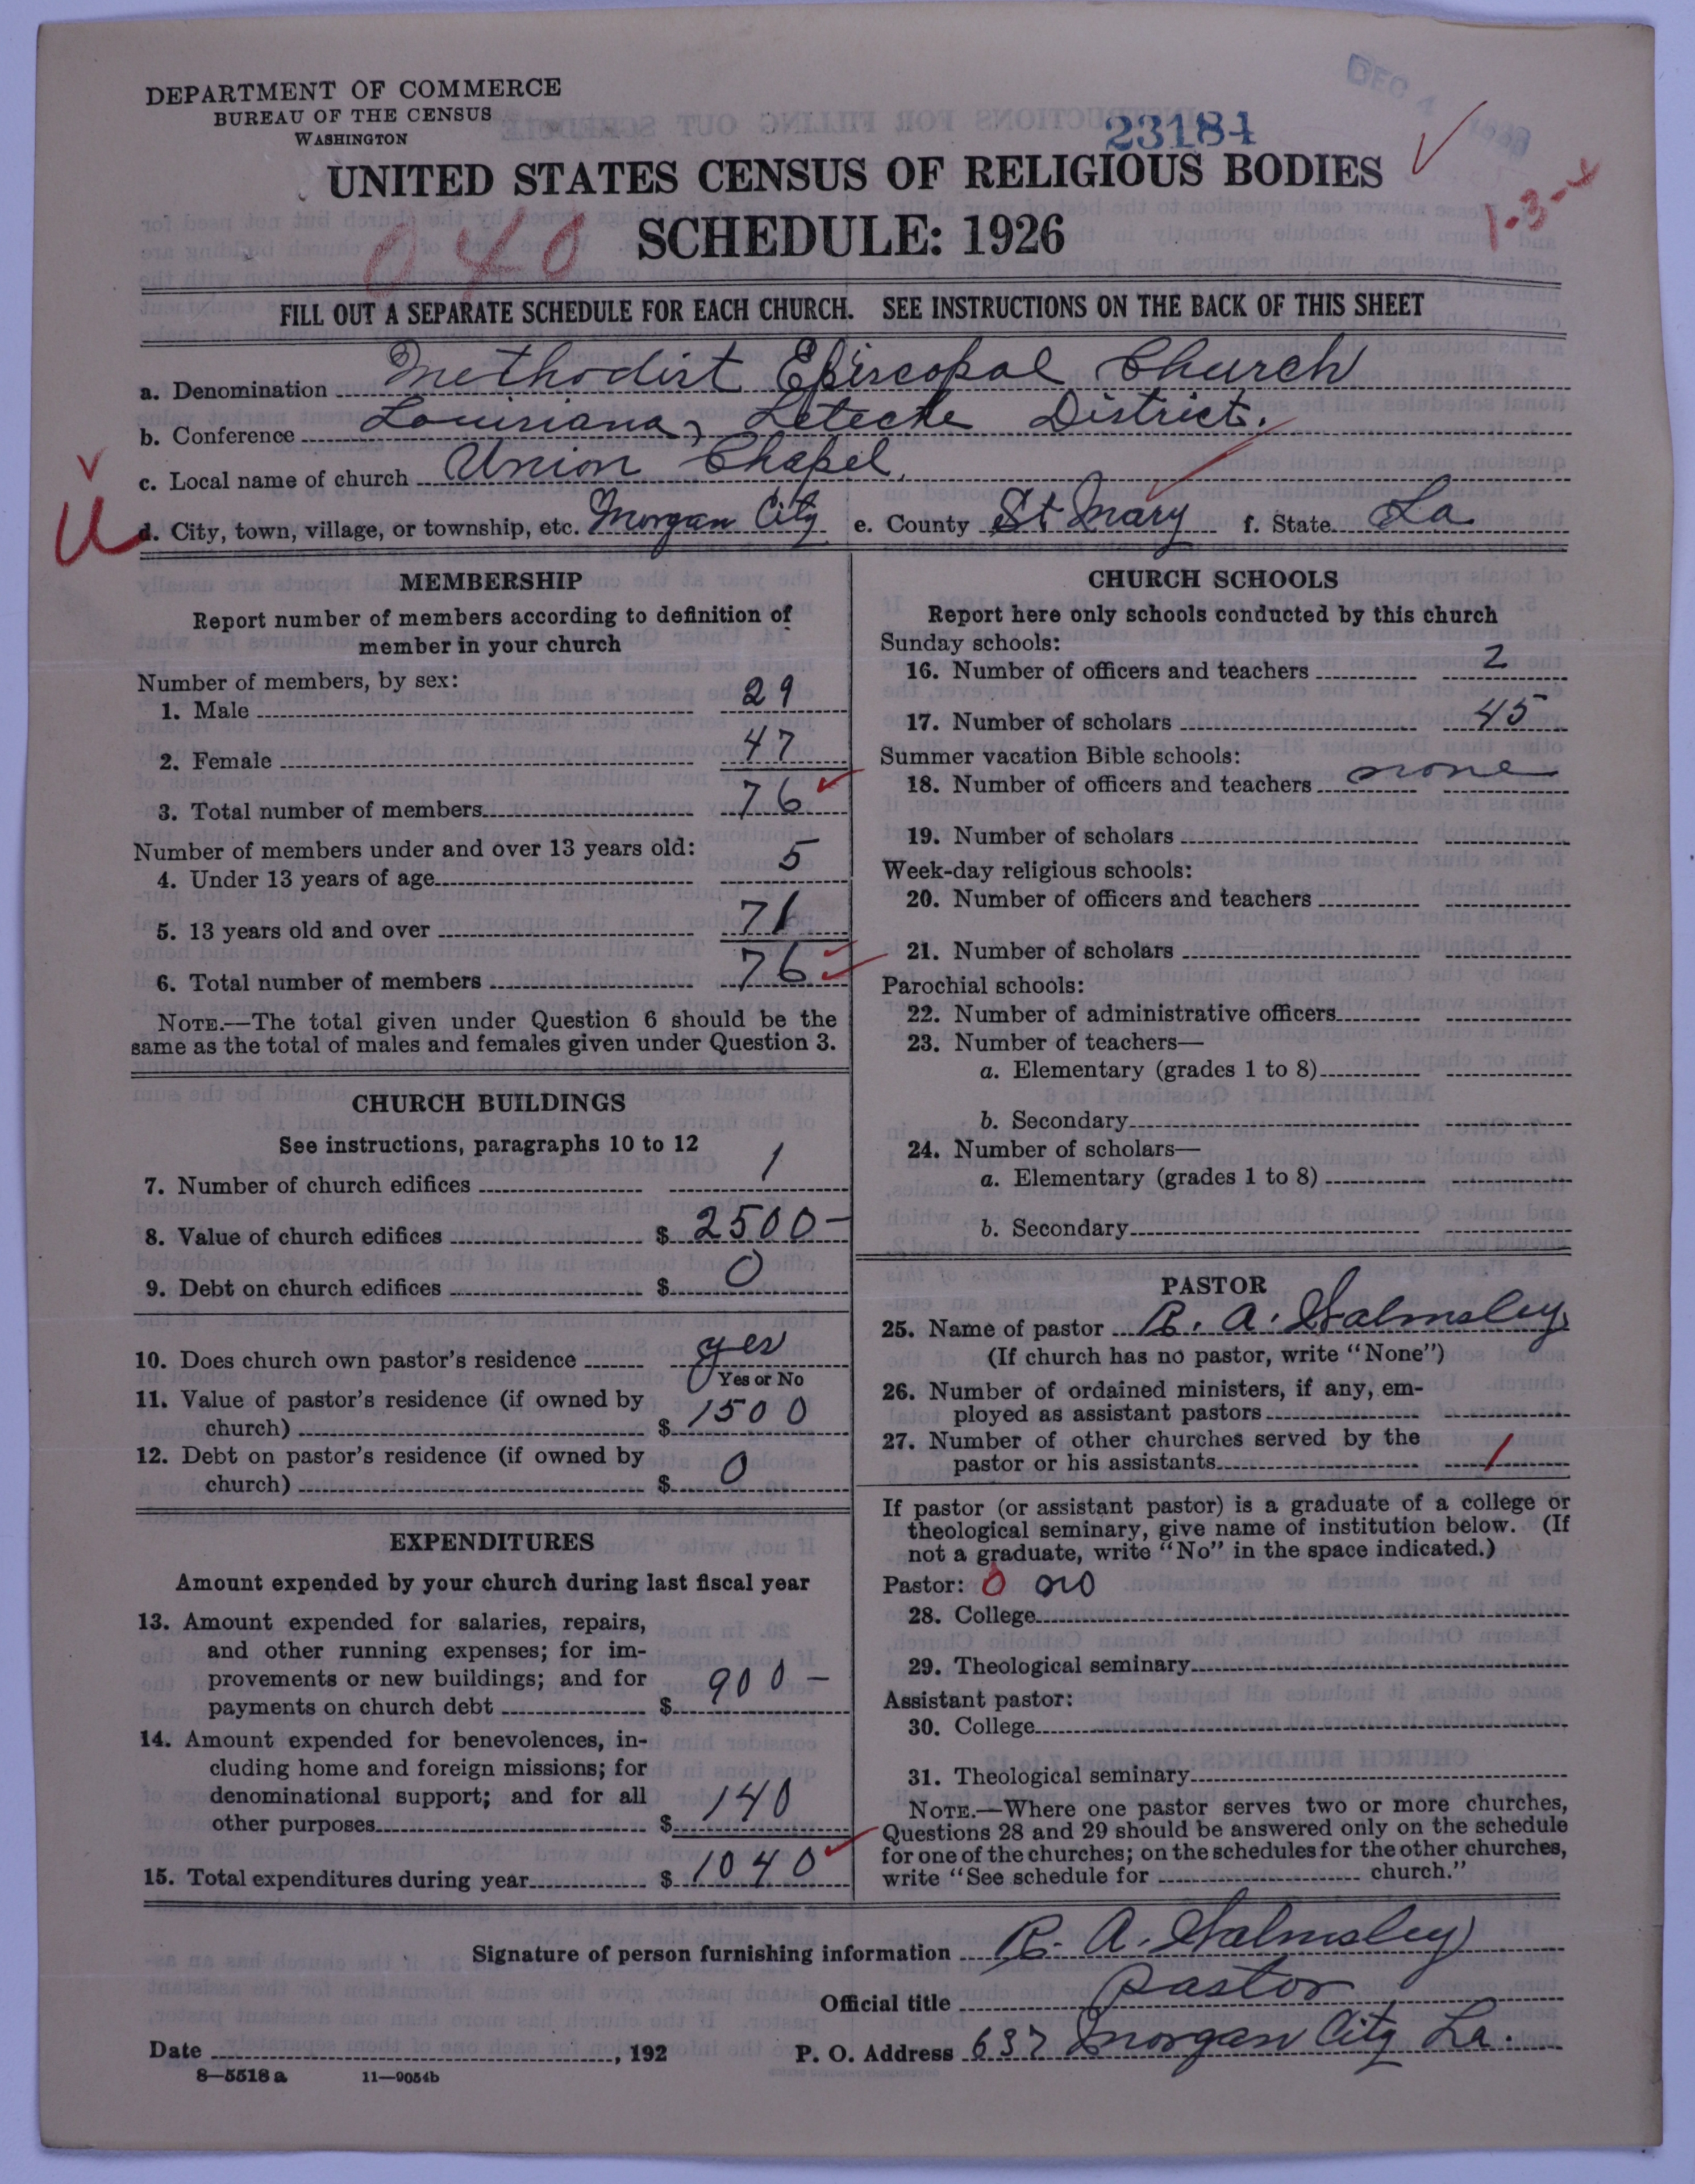 DEPARTMENT OF COMMERCE
BUREAU OF THE CENSUS
WASHINGTON
DEC 4
23184
UNITED STATES CENSUS OF RELIGIOUS BODIES
SCHEDULE: 1926
1-3-x
040
FILL OUT A SEPARATE SCHEDULE FOR EACH CHURCH. SEE INSTRUCTIONS ON THE BACK OF THIS SHEET
a. Denomination Methodist Episcopal Church
b. Conference Louisiana, Leteche District.
c. Local name of church Union Chapel.
U
d. City, town, village, or township, etc. Morgan City e. County St Mary f. State La
MEMBERSHIP
Report number of members according to definition of
member in your church
Number of members, by sex:
1. Male 29
2. Female 47
3. Total number of members 76
Number of members under and over 13 years old:
4. Under 13 years of age 5
5. 13 years old and over 71
6. Total number of members 76
NOTE.—The total given under Question 6 should be the
same as the total of males and females given under Question 3.
CHURCH BUILDINGS
See instructions, paragraphs 10 to 12
7. Number of church edifices 1
8. Value of church edifices $ 2500-
9. Debt on church edifices $ 0
10. Does church own pastor's residence yes
Yes or No
11. Value of pastor's residence (if owned by
church) $ 1500
12. Debt on pastor's residence (if owned by
church) $ 0
EXPENDITURES
Amount expended by your church during last fiscal year
13. Amount expended for salaries, repairs,
and other running expenses; for im-
provements or new buildings; and for
payments on church debt $ 900-
14. Amount expended for benevolences, in-
cluding home and foreign missions; for
denominational support; and for all
other purposes $ 140
15. Total expenditures during year $ 1040
CHURCH SCHOOLS
Report here only schools conducted by this church
Sunday schools:
16. Number of officers and teachers 2
17. Number of scholars 45
Summer vacation Bible schools:
18. Number of officers and teachers none
19. Number of scholars
Week-day religious schools:
20. Number of officers and teachers
21. Number of scholars
Parochial schools:
22. Number of administrative officers
23. Number of teachers—
a. Elementary (grades 1 to 8)
b. Secondary
24. Number of scholars—
a. Elementary (grades 1 to 8)
b. Secondary
PASTOR
25. Name of pastor R. A. Walmsley
(If church has no pastor, write "None")
26. Number of ordained ministers, if any, em-
ployed as assistant pastors
27. Number of other churches served by the
pastor or his assistants 1
If pastor (or assistant pastor) is a graduate of a college or
theological seminary, give name of institution below. (If
not a graduate, write "No" in the space indicated.)
Pastor: 0 no
28. College
29. Theological seminary
Assistant pastor:
30. College
31. Theological seminary
NOTE.—Where one pastor serves two or more churches,
Questions 28 and 29 should be answered only on the schedule
for one of the churches; on the schedules for the other churches,
write "See schedule for church."
Signature of person furnishing information R. A. Walmsley
Official title Pastor
Date , 192 P. O. Address 637 Morgan City La.
8—5518 a 11—9054b